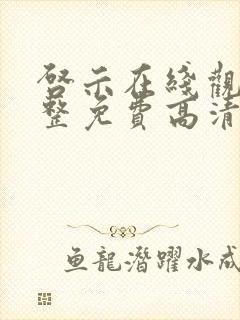 啓示在綫觀
整免費高清
魚龍潛躍水成